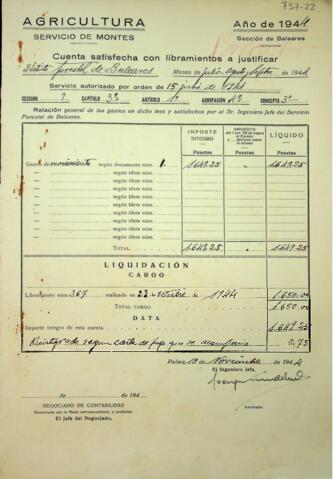 737-22
AGRICULTURA
SERVICIO DE MONTES
Año de 1944
Sección de Baleares
Cuenta satisfecha con libramientos a justificar
Distrito forestal de Baleares Meses de julio, agosto y septbre de 1944
Servicio autorizado por orden de 15 julio de 1944
SECCIÓN CAPÍTULO 3º ARTÍCULO AGRUPACIÓN 4ª CONCEPTO 3º
Relación general de los gastos en dicho mes y satisfechos por el Sr. Ingeniero Jefe del Servicio
Forestal de Baleares.
IMPORTE ÍNTEGRO
Pesetas
IMPUESTO
Pesetas
LÍQUIDO
Pesetas
Gastos de movimiento según documento núm. 1. 1.649.25 1.649.25
según ídem núm.
según ídem núm.
según ídem núm.
según ídem núm.
según ídem núm.
según ídem núm.
según ídem núm.
TOTAL 1.649.25 1.649.25
LIQUIDACIÓN
CARGO
Libramiento núm. 367 realizado en de octubre de 1944 1.650.00
TOTAL CARGO 1.650.00
DATA
Importe íntegro de esta cuenta 1.649.25
Reintegrado según carta de pago que se acompaña 0,75
Palma de Noviembre de 1944
El Ingeniero Jefe,
de de 194
NEGOCIADO DE CONTABILIDAD
El Jefe del Negociado,